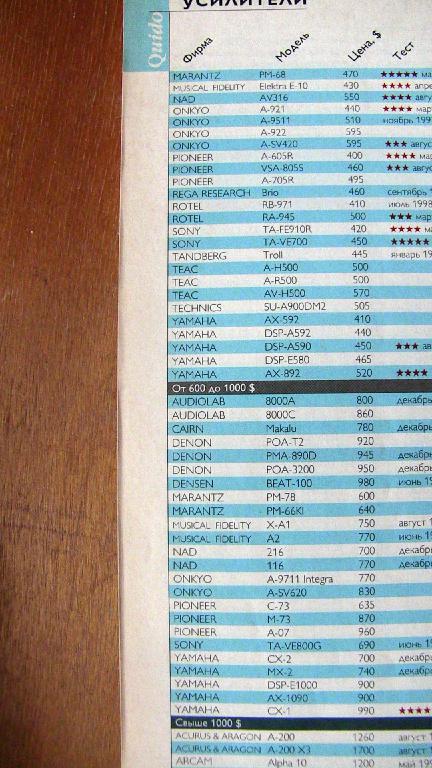 УСИЛИТЕЛИ
Quido
Фирма Модель Цена, $ Тест
MARANTZ PM-68 470 ★★★★★
MUSICAL FIDELITY Elektra E-10 430 ★★★★
NAD AV316 550 ★★★★
ONKYO A-921 440 ★★★★
ONKYO A-9511 510 ноябрь 199
ONKYO A-922 595
ONKYO A-SV420 595 ★★★
PIONEER A-605R 400 ★★★★
PIONEER VSA-805S 460 ★★★
PIONEER A-705R 495
REGA RESEARCH Brio 460 сентябрь
ROTEL RB-971 410 июль 1998
ROTEL RA-945 500 ★★★
SONY TA-FE910R 420 ★★★★
SONY TA-VE700 450 ★★★★★
TANDBERG Troll 445 январь 19
TEAC A-H500 500
TEAC A-R500 500
TEAC AV-H500 570
TECHNICS SU-A900DM2 505
YAMAHA AX-592 410
YAMAHA DSP-A592 440
YAMAHA DSP-A590 450 ★★★
YAMAHA DSP-E580 465
YAMAHA AX-892 520 ★★★★
От 600 до 1000 $
AUDIOLAB 8000A 800 декабрь
AUDIOLAB 8000C 860
CAIRN Makalu 780 декабрь
DENON POA-T2 920
DENON PMA-890D 945 декабрь
DENON POA-3200 950 декабрь
DENSEN BEAT-100 980 июнь 19
MARANTZ PM-78 600
MARANTZ PM-66KI 640
MUSICAL FIDELITY X-A1 750 август 1
MUSICAL FIDELITY A2 770 июнь 19
NAD 216 700 декабрь
NAD 116 770 декабрь
ONKYO A-9711 Integra 770
ONKYO A-SV620 830
PIONEER C-73 635
PIONEER M-73 870
PIONEER A-07 960
SONY TA-VE800G 690 июнь 19
YAMAHA CX-2 700 декабрь
YAMAHA MX-2 740 декабрь
YAMAHA DSP-E1000 900
YAMAHA AX-1090 900
YAMAHA CX-1 990 ★★★★
Свыше 1000 $
ACURUS & ARAGON A-200 1260 август 1
ACURUS & ARAGON A-200 X3 1700 август 1
ARCAM Alpha 10 1200 май 199